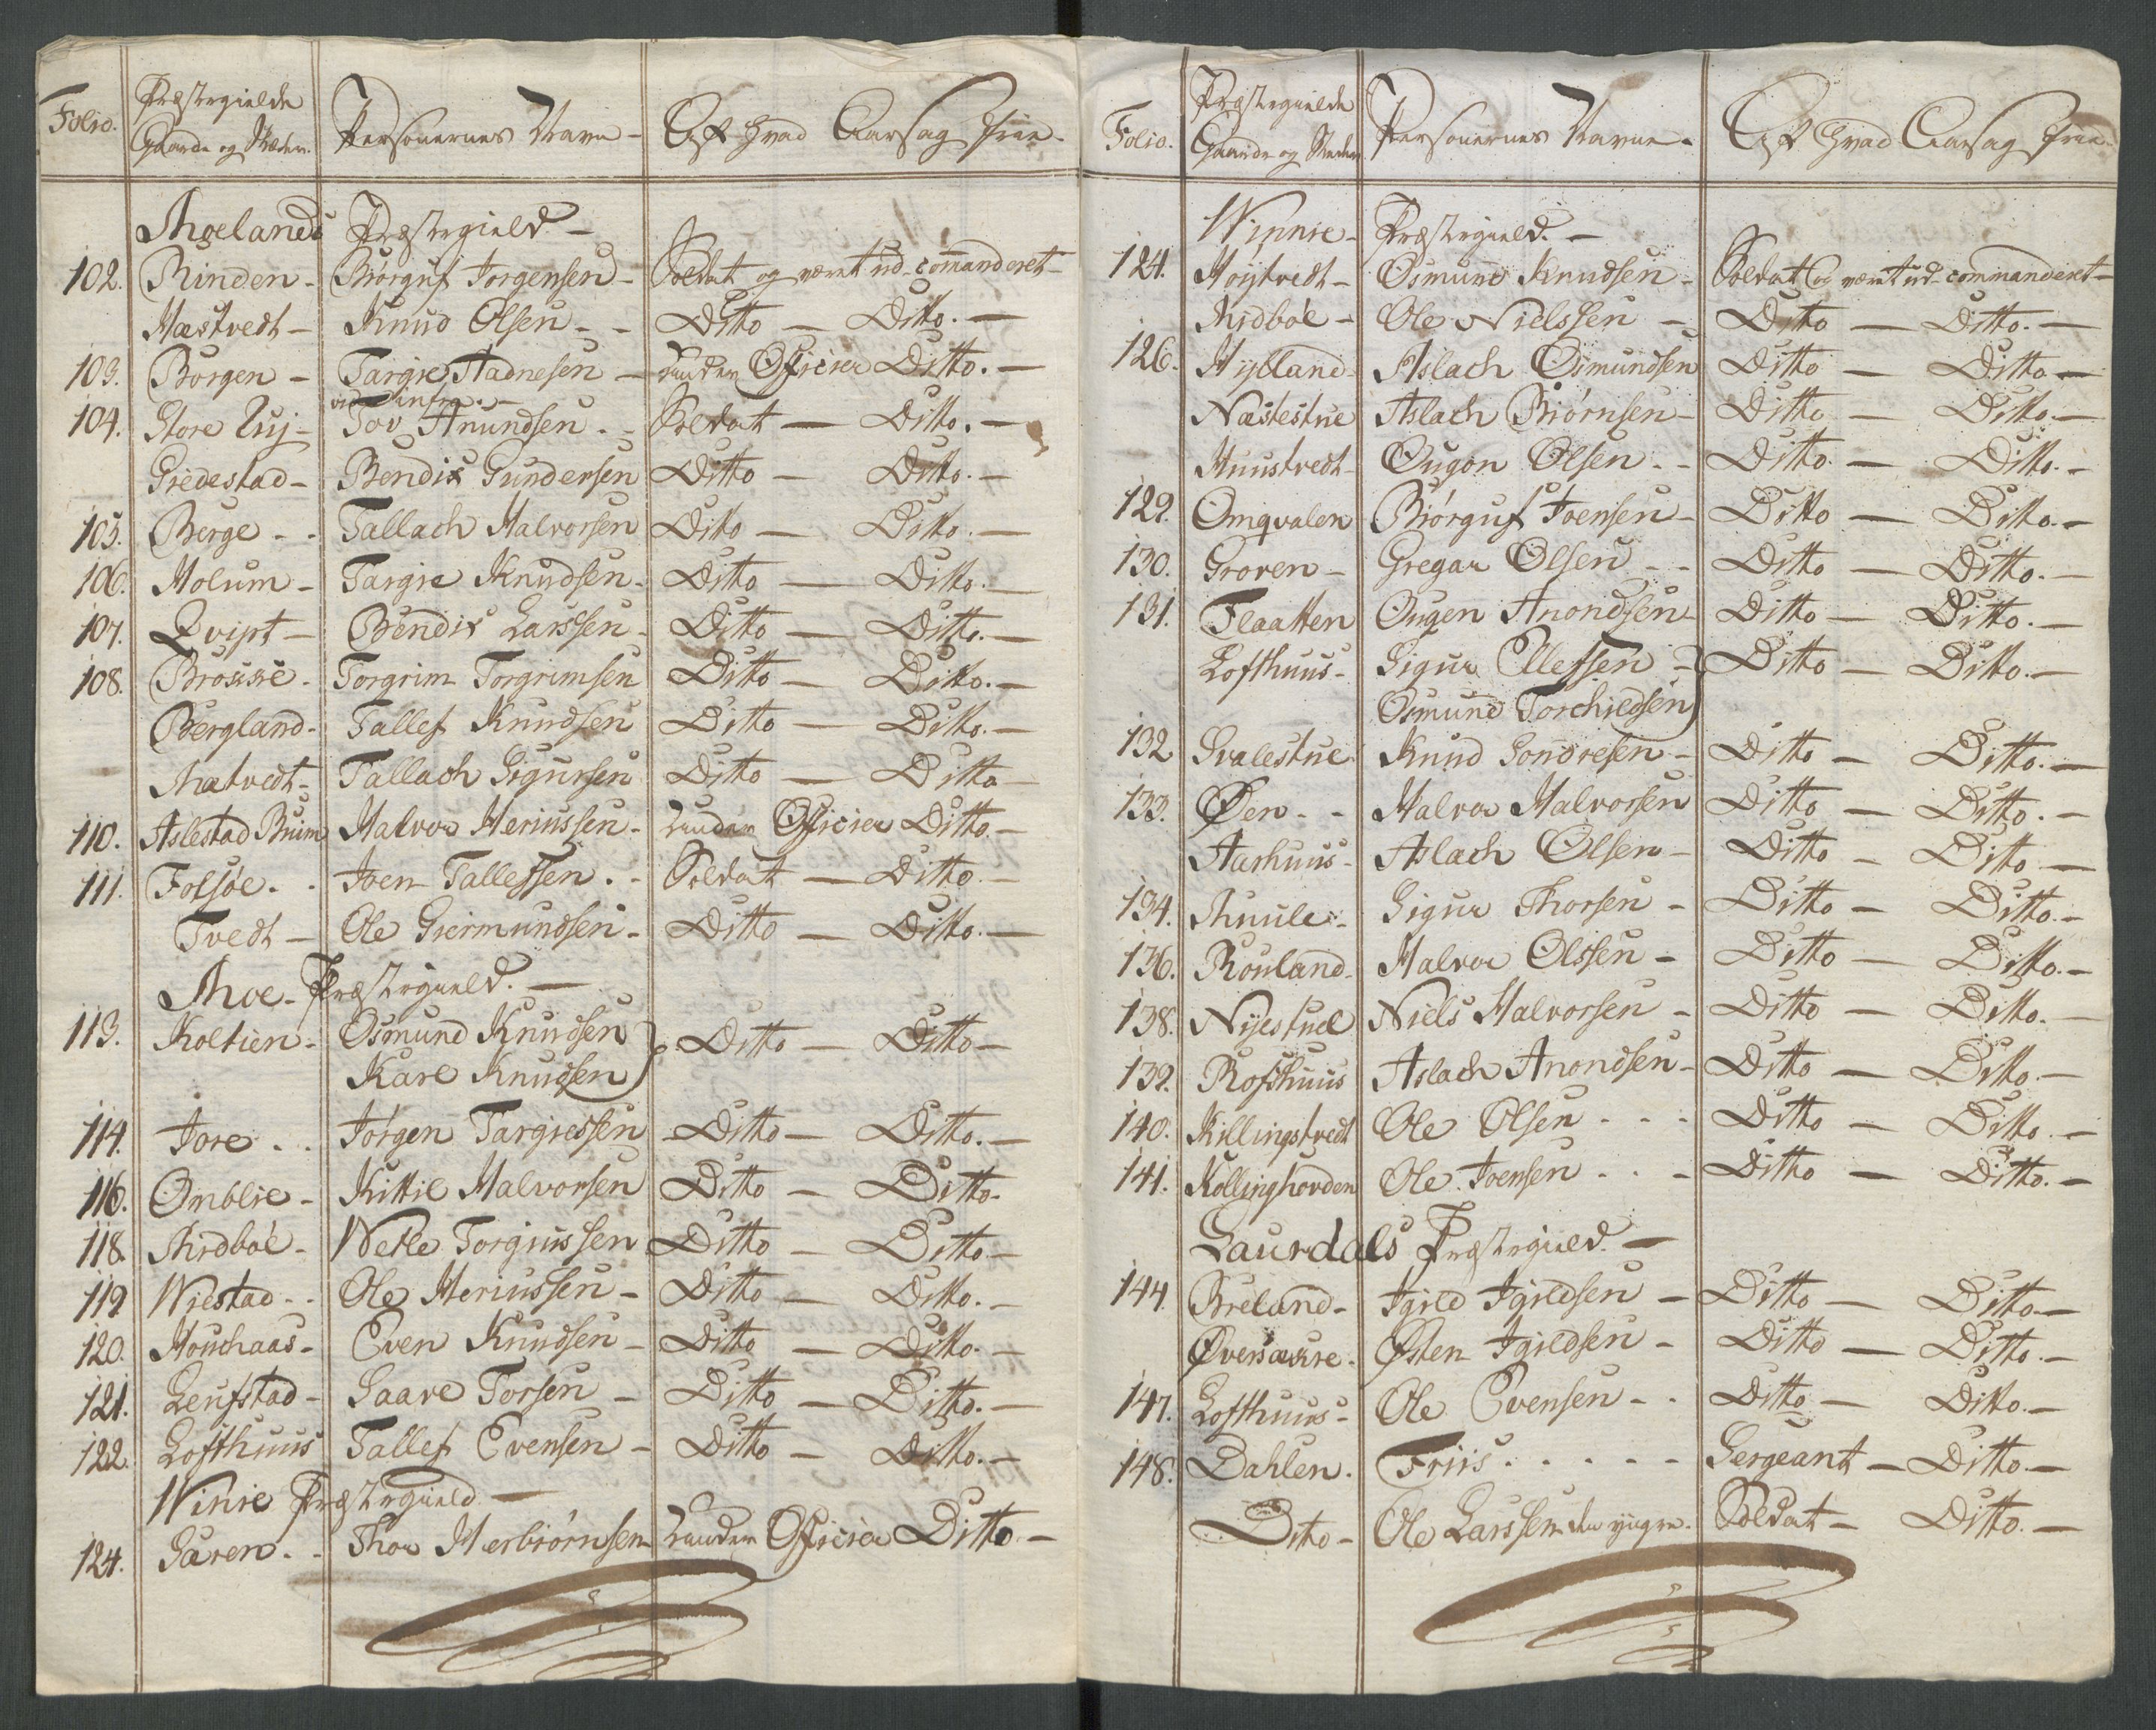 Folio. Præstegielde Gaarde og Stæder. Personernes Navne - Af hvad Aarsag frie -
Moelands Præstegield -
102. Rinden - Biørguf Jorgensen - Soldat og været ud-commanderet -
Mæstvedt - Knud Olsen - - Ditto - Ditto. -
103. Borgen - Targie Aadnesen - under Officier Ditto. -
vide infra. -
104. Store Lij - Tov Anundsen. - Soldat - Ditto. -
Giedestad - Bendix Gundersen Ditto - Ditto. -
105. Berge - - Tallach Halvorsen Ditto - Ditto. -
106. Holum - Targie Knudsen - Ditto - Ditto. -
107. Qvipt - Bendix Larssen - Ditto - Ditto. -
108. Brosse - Torgrim Torgrimsen Ditto - Ditto. -
Bergland - Tallef Knudsen Ditto - Ditto. -
Mætvedt - Tallach Sigursen Ditto - Ditto -
110. Aslestad Bruun Halvor Heriussen - under Officier Ditto. -
111. Folsøe. - Joen Tallefsen. - Soldat - Ditto. -
Tvedt - Ole Giermundsen - Ditto - Ditto. -
Moe - Præstegield. -
113. Koltien - Osmund Knudsen } Ditto - Ditto -
Kare Knudsen
114. Jore. . Jørgen Targiessen - Ditto - Ditto. -
116. Omblie - Kittil Halvorsen Ditto - Ditto -
118. Midbøe - Wetle Torgiussen Ditto - Ditto -
119 Wiestad - - Ole Heriussen - Ditto - Ditto. -
120. Houchaas - Even Knudsen - Ditto - Ditto. -
121. Leufstad - Saave Torsen - Ditto - Ditto. -
122. Lofthuus Tallef Evensen - Ditto - Ditto. -
Winie Præstegield -
124. Garen. . Thor Herbiørnsen under Officier Ditto. -
Folio. Præstegielde Gaarde og Stæder Personernes Navne. Af hvad Aarsag frie -
Winnie - Præstegield. -
124. Høytvedt - Osmund Knudsen - Soldat og været ud-commanderet -
Midbøe - Ole Nielssen - Ditto - Ditto. -
126. Hylland - Aslach Osmundsen Ditto - Ditto -
Næstestue Aslach Biørnsen - Ditto - Ditto. -
Huustvedt - Ougon Olsen. - Ditto. - Ditto. -
129. Omqvalen Biørguf Joensen - Ditto - Ditto. -
130. Groven - Gregar Olsen - - Ditto - Ditto. -
131. Flaatten Ougen Anondsen - Ditto - Ditto. -
Lofthuus - Sigur Ellefsen - } Ditto - Ditto. -
Osmund Torchildsen
132 Svalestue Knud Sondresen - Ditto - Ditto. -
133. Øen. - Halvor Halvorsen Ditto - Ditto. -
Aashuus - Aslach Olsen - Ditto - Ditto -
134. Muule - Sigur Thorsen - Ditto - Ditto. -
136. Rouland - Halvor Olssen - Ditto - Ditto. -
138. Nijestuel Niels Halvorsen - Ditto - Ditto. -
139. Rofshuus Aslach Anondsen - Ditto - Ditto. -
140. Killingstvedt Ole Olsen - - - Ditto - Ditto. -
141. Kollinghovden Ole Joensen . . - Ditto - Ditto. -
Laurdals Præstegield. -
144. Breland - Igild Igildsen - Ditto - Ditto. -
Øversækre. Østen Igildsen - Ditto - Ditto. -
147. Lofthuus - Ole Evensen - . Ditto - Ditto. -
148. Dahlen. Friis. . . - - Sergeant - Ditto -
Dito - Ole Larssen den yngre. Soldat - Ditto. -